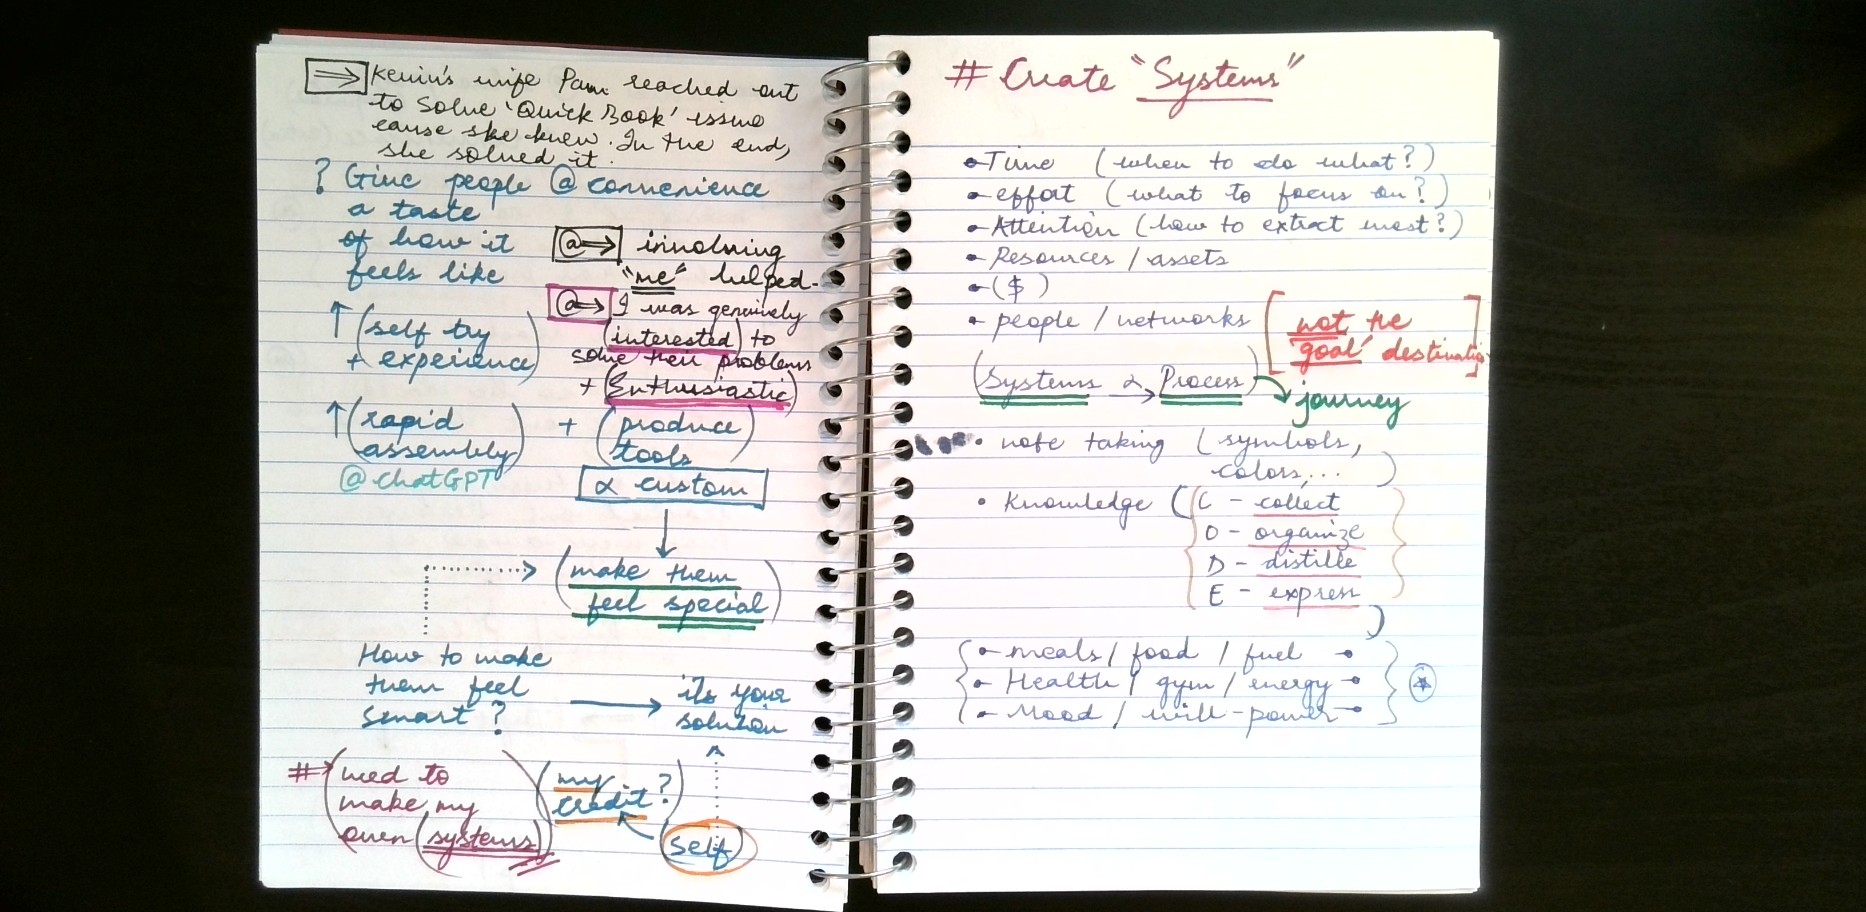 ⇒ Kevin's wife Pam reached out
to solve 'Quick Book' issue
cause she knew. In the end,
she solved it.
? Give people @ convenience
a taste
of how it
feels like
@⇒ involving
"me" helped.
@→ I was genuinely
(interested) to
solve their problems
+ (Enthusiastic)
↑ (self try
+ experience)
↑ (rapid
assembly)
@ chatGPT
+ (produce
tools)
∝ custom
(make them
feel special)
How to make
them feel
smart?
→ its your
solution
#→ (need to
make my
own (systems))
(my
credit?)
(self)
# Create "Systems"
• Time (when to do what?)
• effort (what to focus on?)
• Attention (how to extract most?)
• Resources / assets
• ($)
• people / networks
[not the
'goal' destination]
(Systems ∝→ Process)
journey
• note taking (symbols,
colors,... )
• Knowledge (C - collect
O - organize
D - distille
E - express
)
• meals / food / fuel
• Health / gym / energy
• Mood / will-power